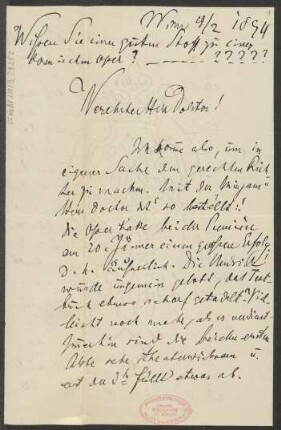 Wien 9/2 1894
Wissen Sie einen guten Stoff zu einer
komischen Oper? — ????
Verehrter Herr Doktor!
Ich komme also, um in
eigener Sache den gerechten Rich-
ter zu machen. Mit der
Doctor so bestellt:
die Oper hatte bei der Première
am 20 Jänner einen großen Erfolg
d. h. äußerlich. Die Musik
wurde ungemein gelobt, das Text-
buch etwas scharf getadelt. Viel-
leicht noch mehr, als es verdient
sind die beiden ersten
Akte sehr theaterwirksam u.
erst der 3te fällt etwas ab.